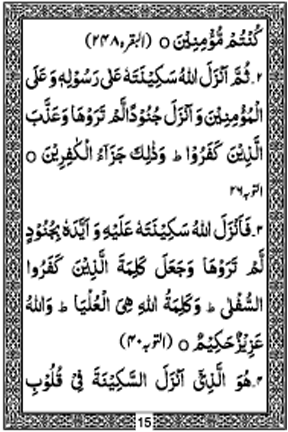 كُنْتُمْ مُّؤْمِنِيْنَ ○ (البقرہ ۲۴۸)
۲۔ ثُمَّ اَنْزَلَ اللهُ سَكِيْنَتَهٗ عَلٰى رَسُوْلِهٖ وَعَلَى
الْمُؤْمِنِيْنَ وَاَنْزَلَ جُنُوْدًا لَّمْ تَرَوْهَا وَعَذَّبَ
الَّذِيْنَ كَفَرُوْا ؕ وَذٰلِكَ جَزَآءُ الْكٰفِرِيْنَ ○
التوبہ ۲۶
۳۔ فَاَنْزَلَ اللهُ سَكِيْنَتَهٗ عَلَيْهِ وَاَيَّدَهٗ بِجُنُوْدٍ
لَّمْ تَرَوْهَا وَجَعَلَ كَلِمَةَ الَّذِيْنَ كَفَرُوا
السُّفْلٰى ؕ وَكَلِمَةُ اللهِ هِىَ الْعُلْيَا ؕ وَاللهُ
عَزِيْزٌ حَكِيْمٌ ○ (التوبہ ۴۰)
۴۔ هُوَ الَّذِىْٓ اَنْزَلَ السَّكِيْنَةَ فِىْ قُلُوْبِ
15